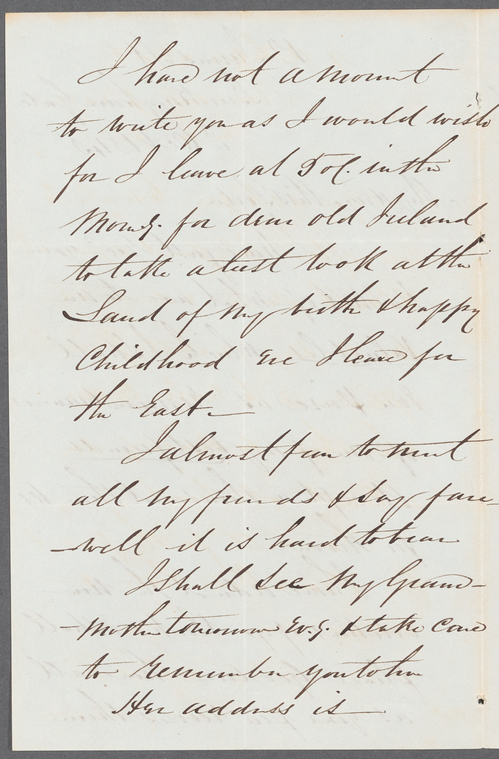 I have not a moment
to write you as I would wish
for I leave at 5 o'C. in the
Morng. for dear old Ireland
to take a last look at the
Land of my birth & happy
Childhood ere I leave for
the East—
I almost fear to meet
all my friends & say fare-
-well it is hard to bear
I shall see my Grand-
-mother tomorrow Evg. & take care
to remember you to her
Her address is —